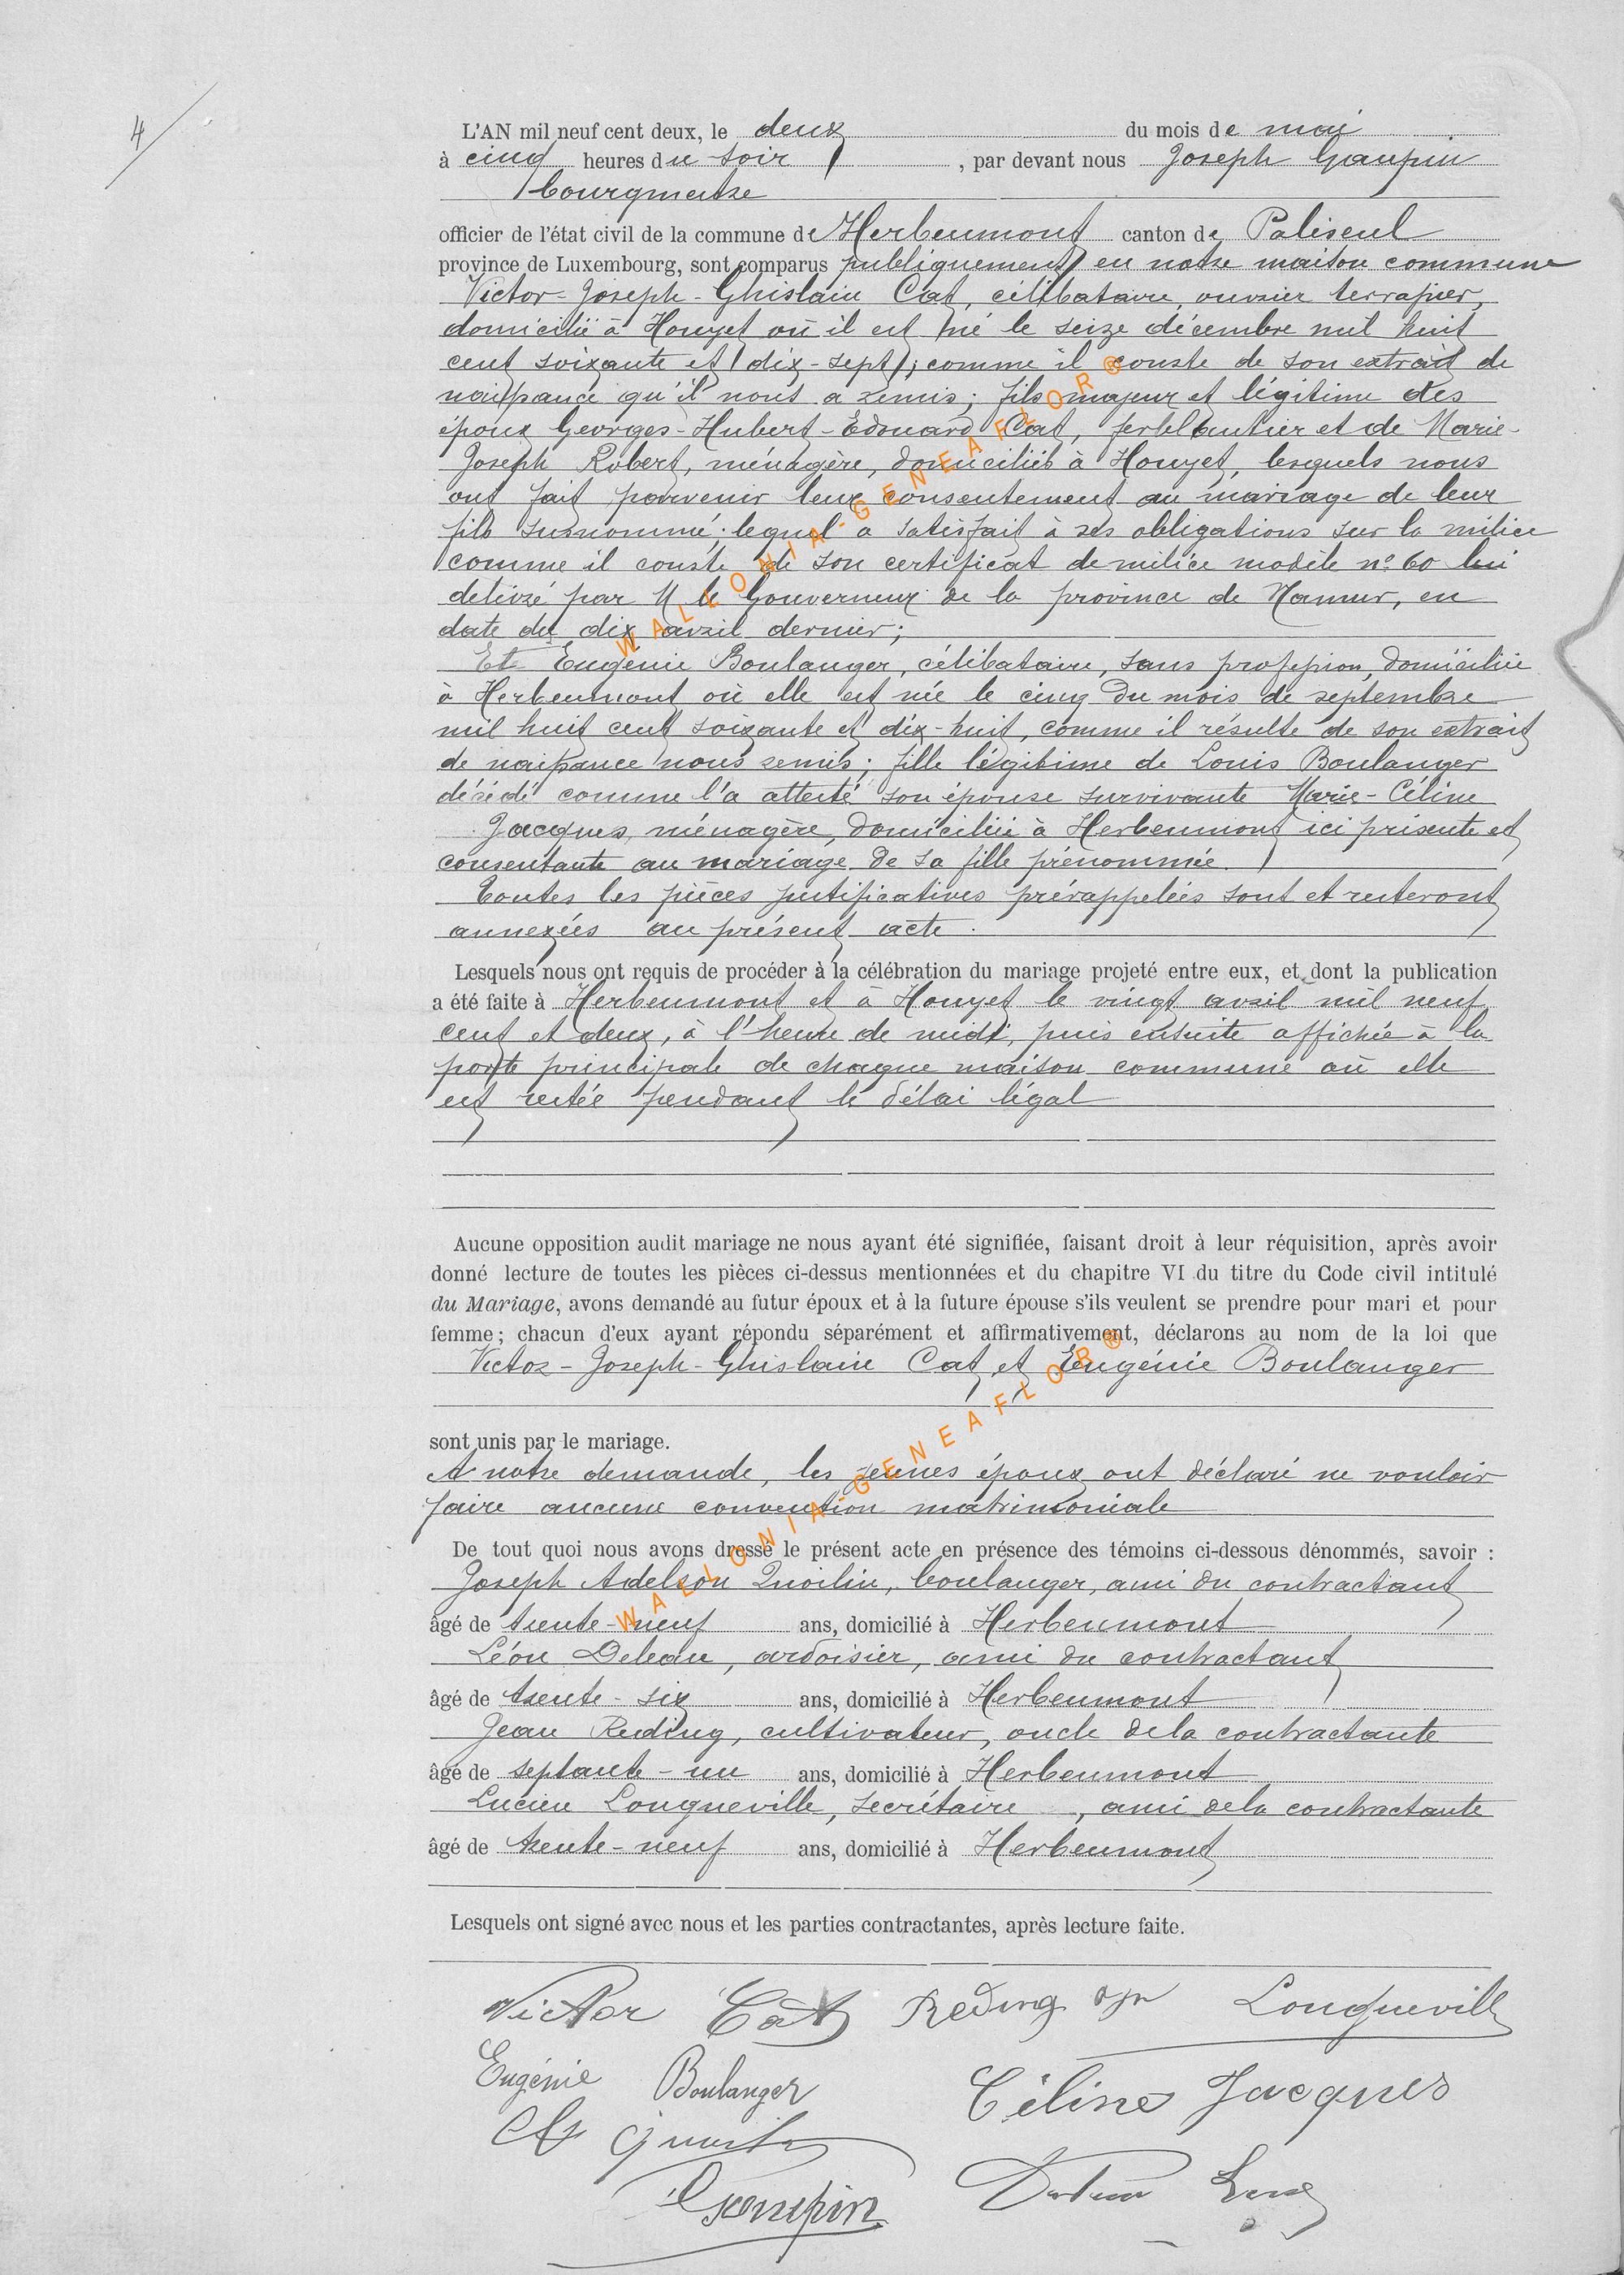 4
L'AN mil neuf cent deux, le deux du mois de mai
à cinq heures du soir, par devant nous Joseph Gaupin
bourgmestre
officier de l'état civil de la commune de Herbeumont canton de Paliseul
province de Luxembourg, sont comparus publiquement en notre maison commune
Victor-Joseph-Ghislain Cat, célibataire, ouvrier terrassier,
domicilié à Houyet où il est né le seize décembre mil huit
cent soixante et dix-sept; comme il conste de son extrait de
naissance qu'il nous a remis; fils majeur et légitime des
époux Georges-Hubert-Edouard Cat, ferblantier et de Marie-
Joseph Robert, ménagère, domiciliés à Houyet, lesquels nous
ont fait parvenir leur consentement au mariage de leur
fils susnommé; lequel a satisfait à ses obligations sur la milice
comme il conste de son certificat de milice modèle n° 60 lui
délivré par M le Gouverneur de la province de Namur, en
date du dix avril dernier;
Et Eugénie Boulanger, célibataire, sans profession, domiciliée
à Herbeumont où elle est née le cinq du mois de septembre
mil huit cent soixante et dix-huit, comme il résulte de son extrait
de naissance nous remis; fille légitime de Louis Boulanger
décédé comme l'a attesté son épouse survivante Marie-Céline
Jacques, ménagère, domiciliée à Herbeumont ici présente et
consentante au mariage de sa fille prénommée.
Toutes les pièces justificatives prérappelées sont et resteront
annexées au présent acte.
Lesquels nous ont requis de procéder à la célébration du mariage projeté entre eux, et dont la publication
a été faite à Herbeumont et à Houyet le vingt avril mil neuf
cent et deux, à l'heure de midi, puis ensuite affichée à la
porte principale de chaque maison commune où elle
est restée pendant le délai légal
Aucune opposition audit mariage ne nous ayant été signifiée, faisant droit à leur réquisition, après avoir
donné lecture de toutes les pièces ci-dessus mentionnées et du chapitre VI du titre du Code civil intitulé
du Mariage, avons demandé au futur époux et à la future épouse s'ils veulent se prendre pour mari et pour
femme; chacun d'eux ayant répondu séparément et affirmativement, déclarons au nom de la loi que
Victor-Joseph-Ghislain Cat et Eugénie Boulanger
sont unis par le mariage.
A notre demande, les jeunes époux ont déclaré ne vouloir
faire aucune convention matrimoniale
De tout quoi nous avons dressé le présent acte en présence des témoins ci-dessous dénommés, savoir :
Joseph Adelson Quoilin, boulanger, ami du contractant
âgé de trente-neuf ans, domicilié à Herbeumont
Léon, ardoisier, ami du contractant
âgé de trente-six ans, domicilié à Herbeumont
Jean Reding, cultivateur, oncle de la contractante
âgé de septante-un ans, domicilié à Herbeumont
Lucien Longueville, secrétaire, ami de la contractante
âgé de trente-neuf ans, domicilié à Herbeumont
Lesquels ont signé avec nous et les parties contractantes, après lecture faite.
Victor Cat Reding Longueville
Eugénie Boulanger Céline Jacques
Gaupin
WALLONIA-GENEAFLOR®
WALLONIA-GENEAFLOR®